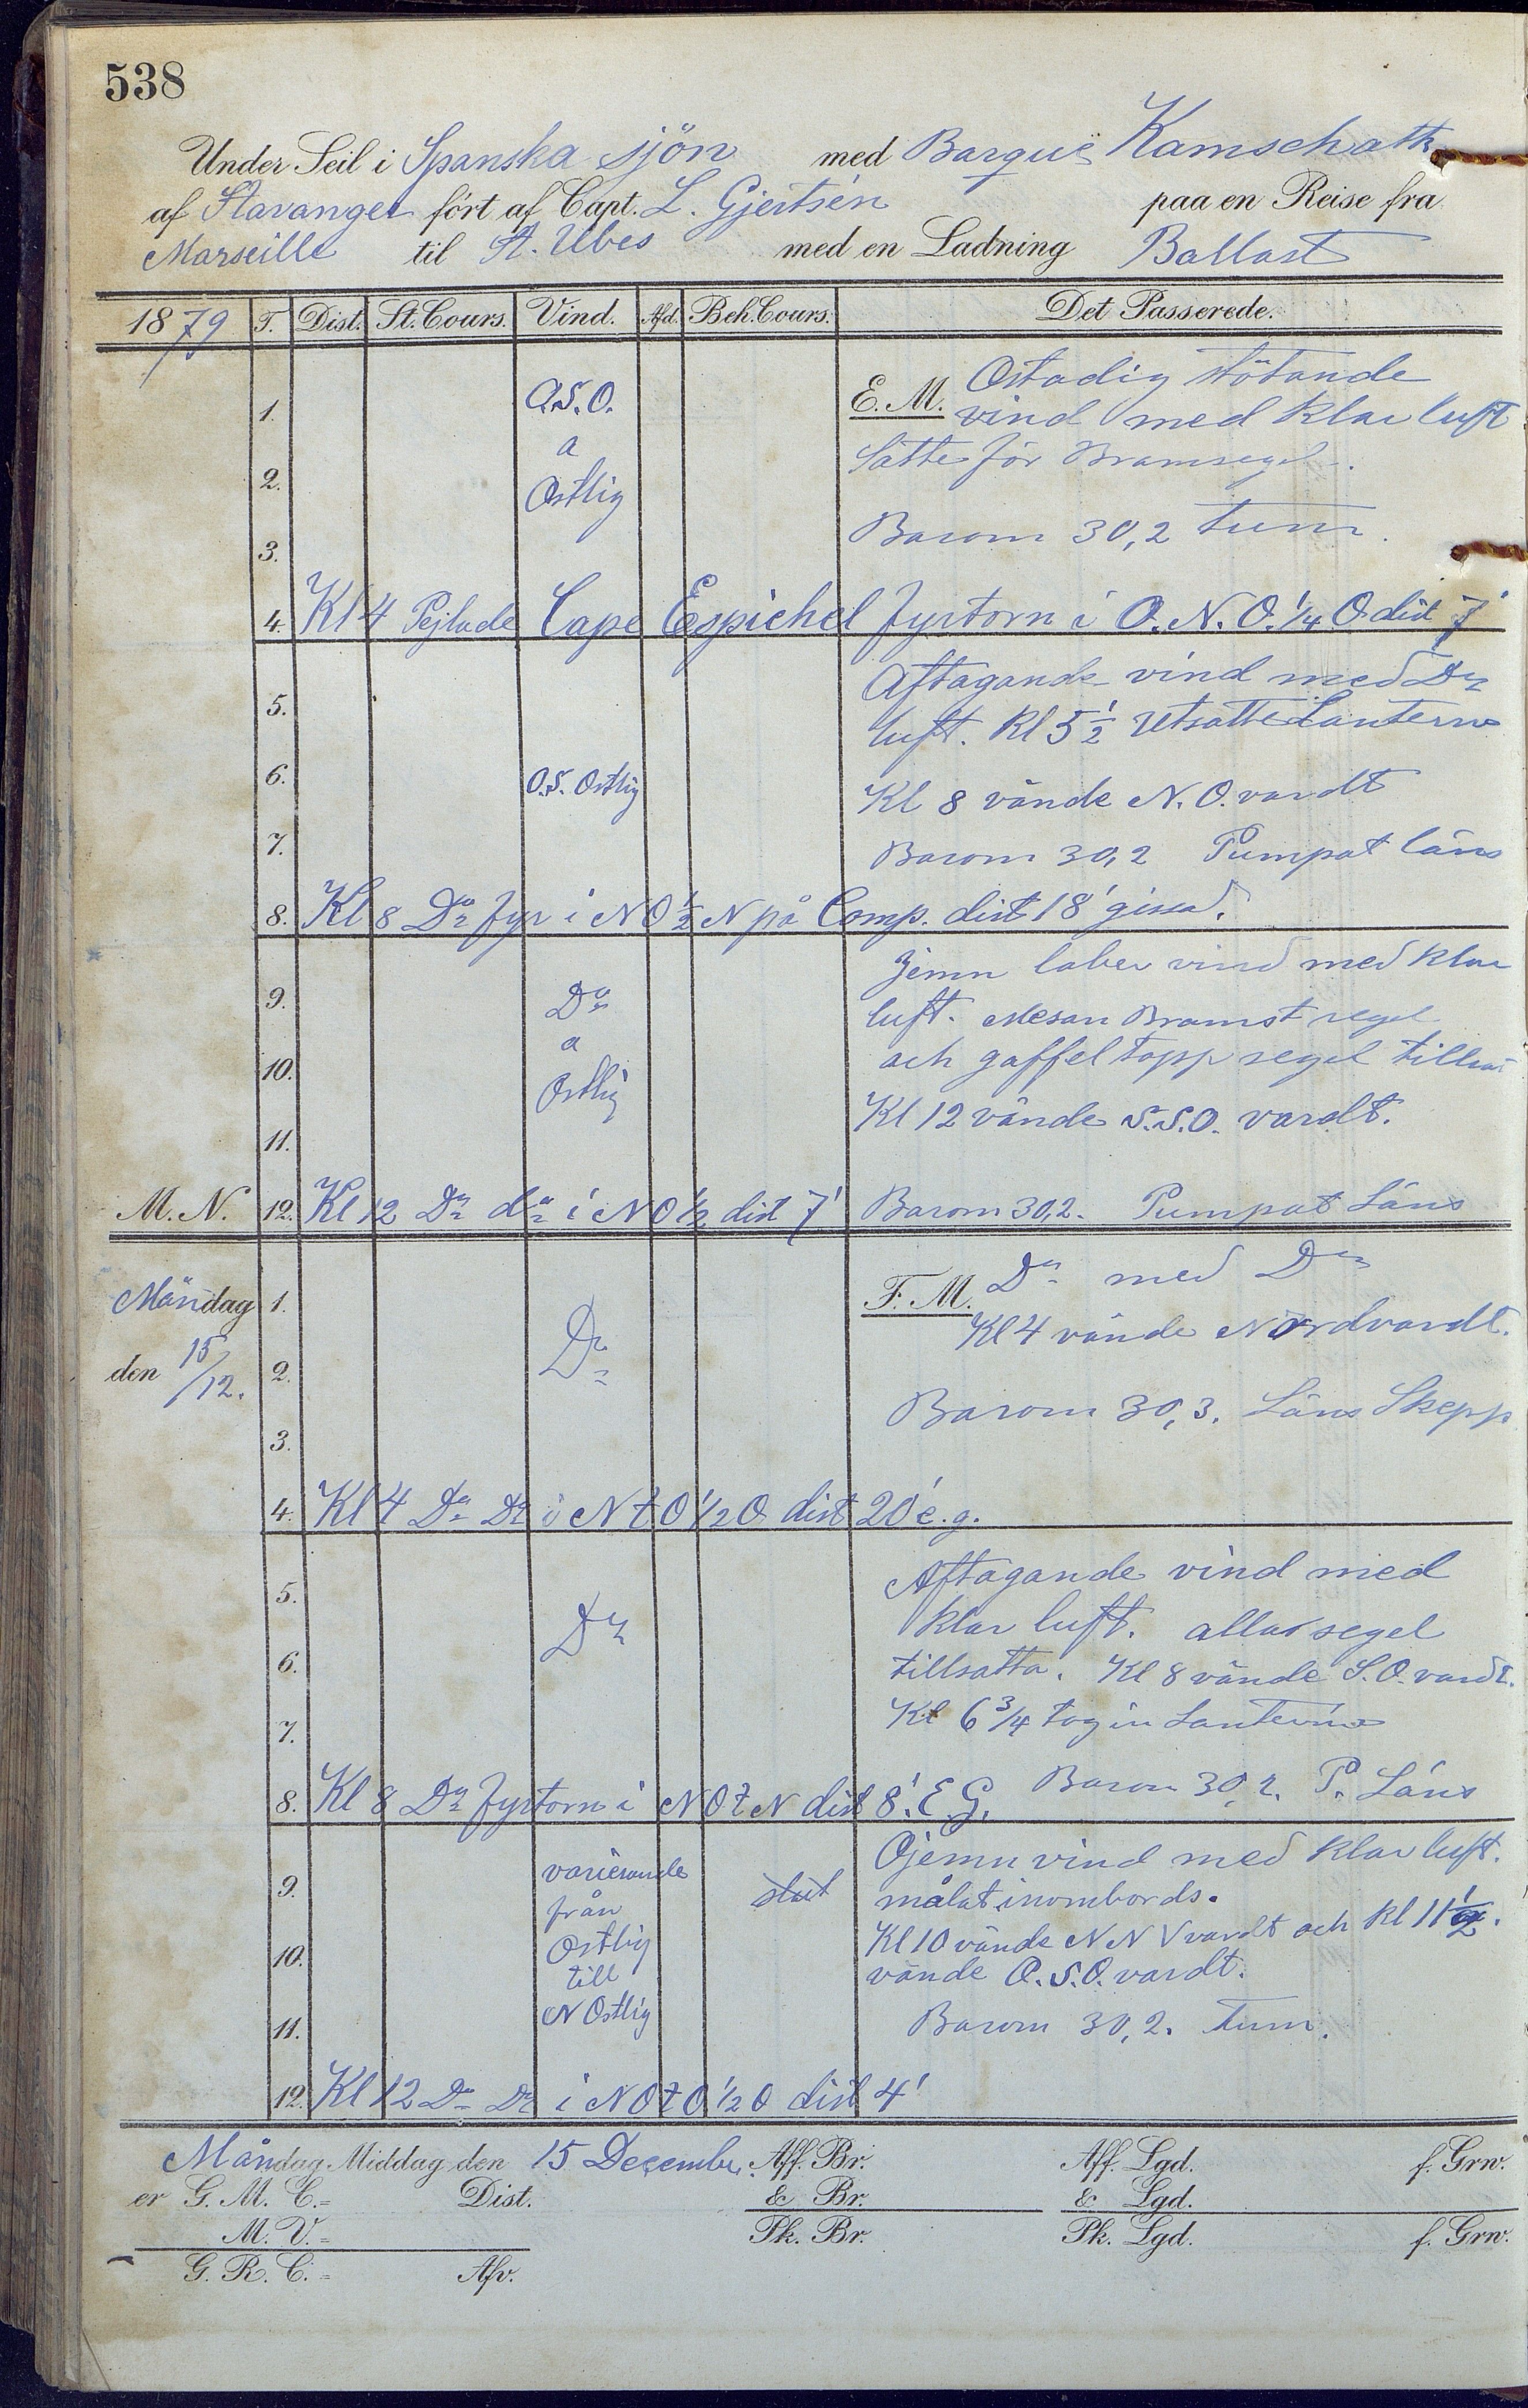 538
Under Seil i Spanska sjön med Barque Kamschatk
af Stavanger ført af Capt. L. Gjertsen paa en Reise fra
Marseille til St. Ubes med en Ladning Ballast
1879 T. Dist. St. Cours. Vind. Afd. Beh. Cours. Det Passerede.
E. M. Ostadig stötande
1. O.S.O. vind med klar luft
a Sätte för Bramsegel.
2. Ostlig
Barom 30,2 tum.
3.
4. Kl 4 Pejlade Cape Espichel fyrtorn i O.N.O. 1/4 O dist 7'
Aftagande vind med Do
5. luft. Kl 5 1/2 Utsatte Lanterna
6. O.S. Ostlig Kl 8 vände N.O. vardt
7. Barom 30,2 Pumpat läns
8. Kl 8 Do fyr i NO 1/2 N på Comp. dist 18' gissad.
Jemn laber vind med klar
9. Do luft. Mesan Bramst segel
a och gaffel topp segel
10. Ostlig
Kl 12 vände S.S.O. vardt.
11.
M. N. 12. Kl 12 Do do i NO 1/2 dist 7' Barom 30,2. Pumpat Läns
F. M. Do med Do
Måndag 1. Kl 4 vände Nordvardt.
den 15/12. 2. Do
Barom 30,3. Läns Skepp
3.
4. Kl 4 Do Do i N t O 1/2 O dist 20' e.g.
Aftagande vind med
5. klar luft. alla segel
Do
6. tillsatta. Kl 8 vände S.O. vardt.
7. Kl 6 3/4 tog in Lanterna
Barom 30,2. P. Läns
8. Kl 8 Do fyrtorn i NO t N dist 8'. E.G.
Ojemn vind med klar luft.
9. varierande målat inombords.
från
10. Ostlig Kl 10 vände NNV vardt och Kl 11 1/2.
till vände O.S.O. vardt.
11. N Ostlig Barom 30,2. tum.
12. Kl 12 Do Do i NO t O 1/2 O dist 4'
Måndag Middag den 15 December. Aff. Br. Aff. Lgd. f. Grw.
er G. M. C. = Dist. & Br. & Lgd.
M. V. = Pk. Br. Pk. Lgd. f. Grw.
G. R. C. = Afv.